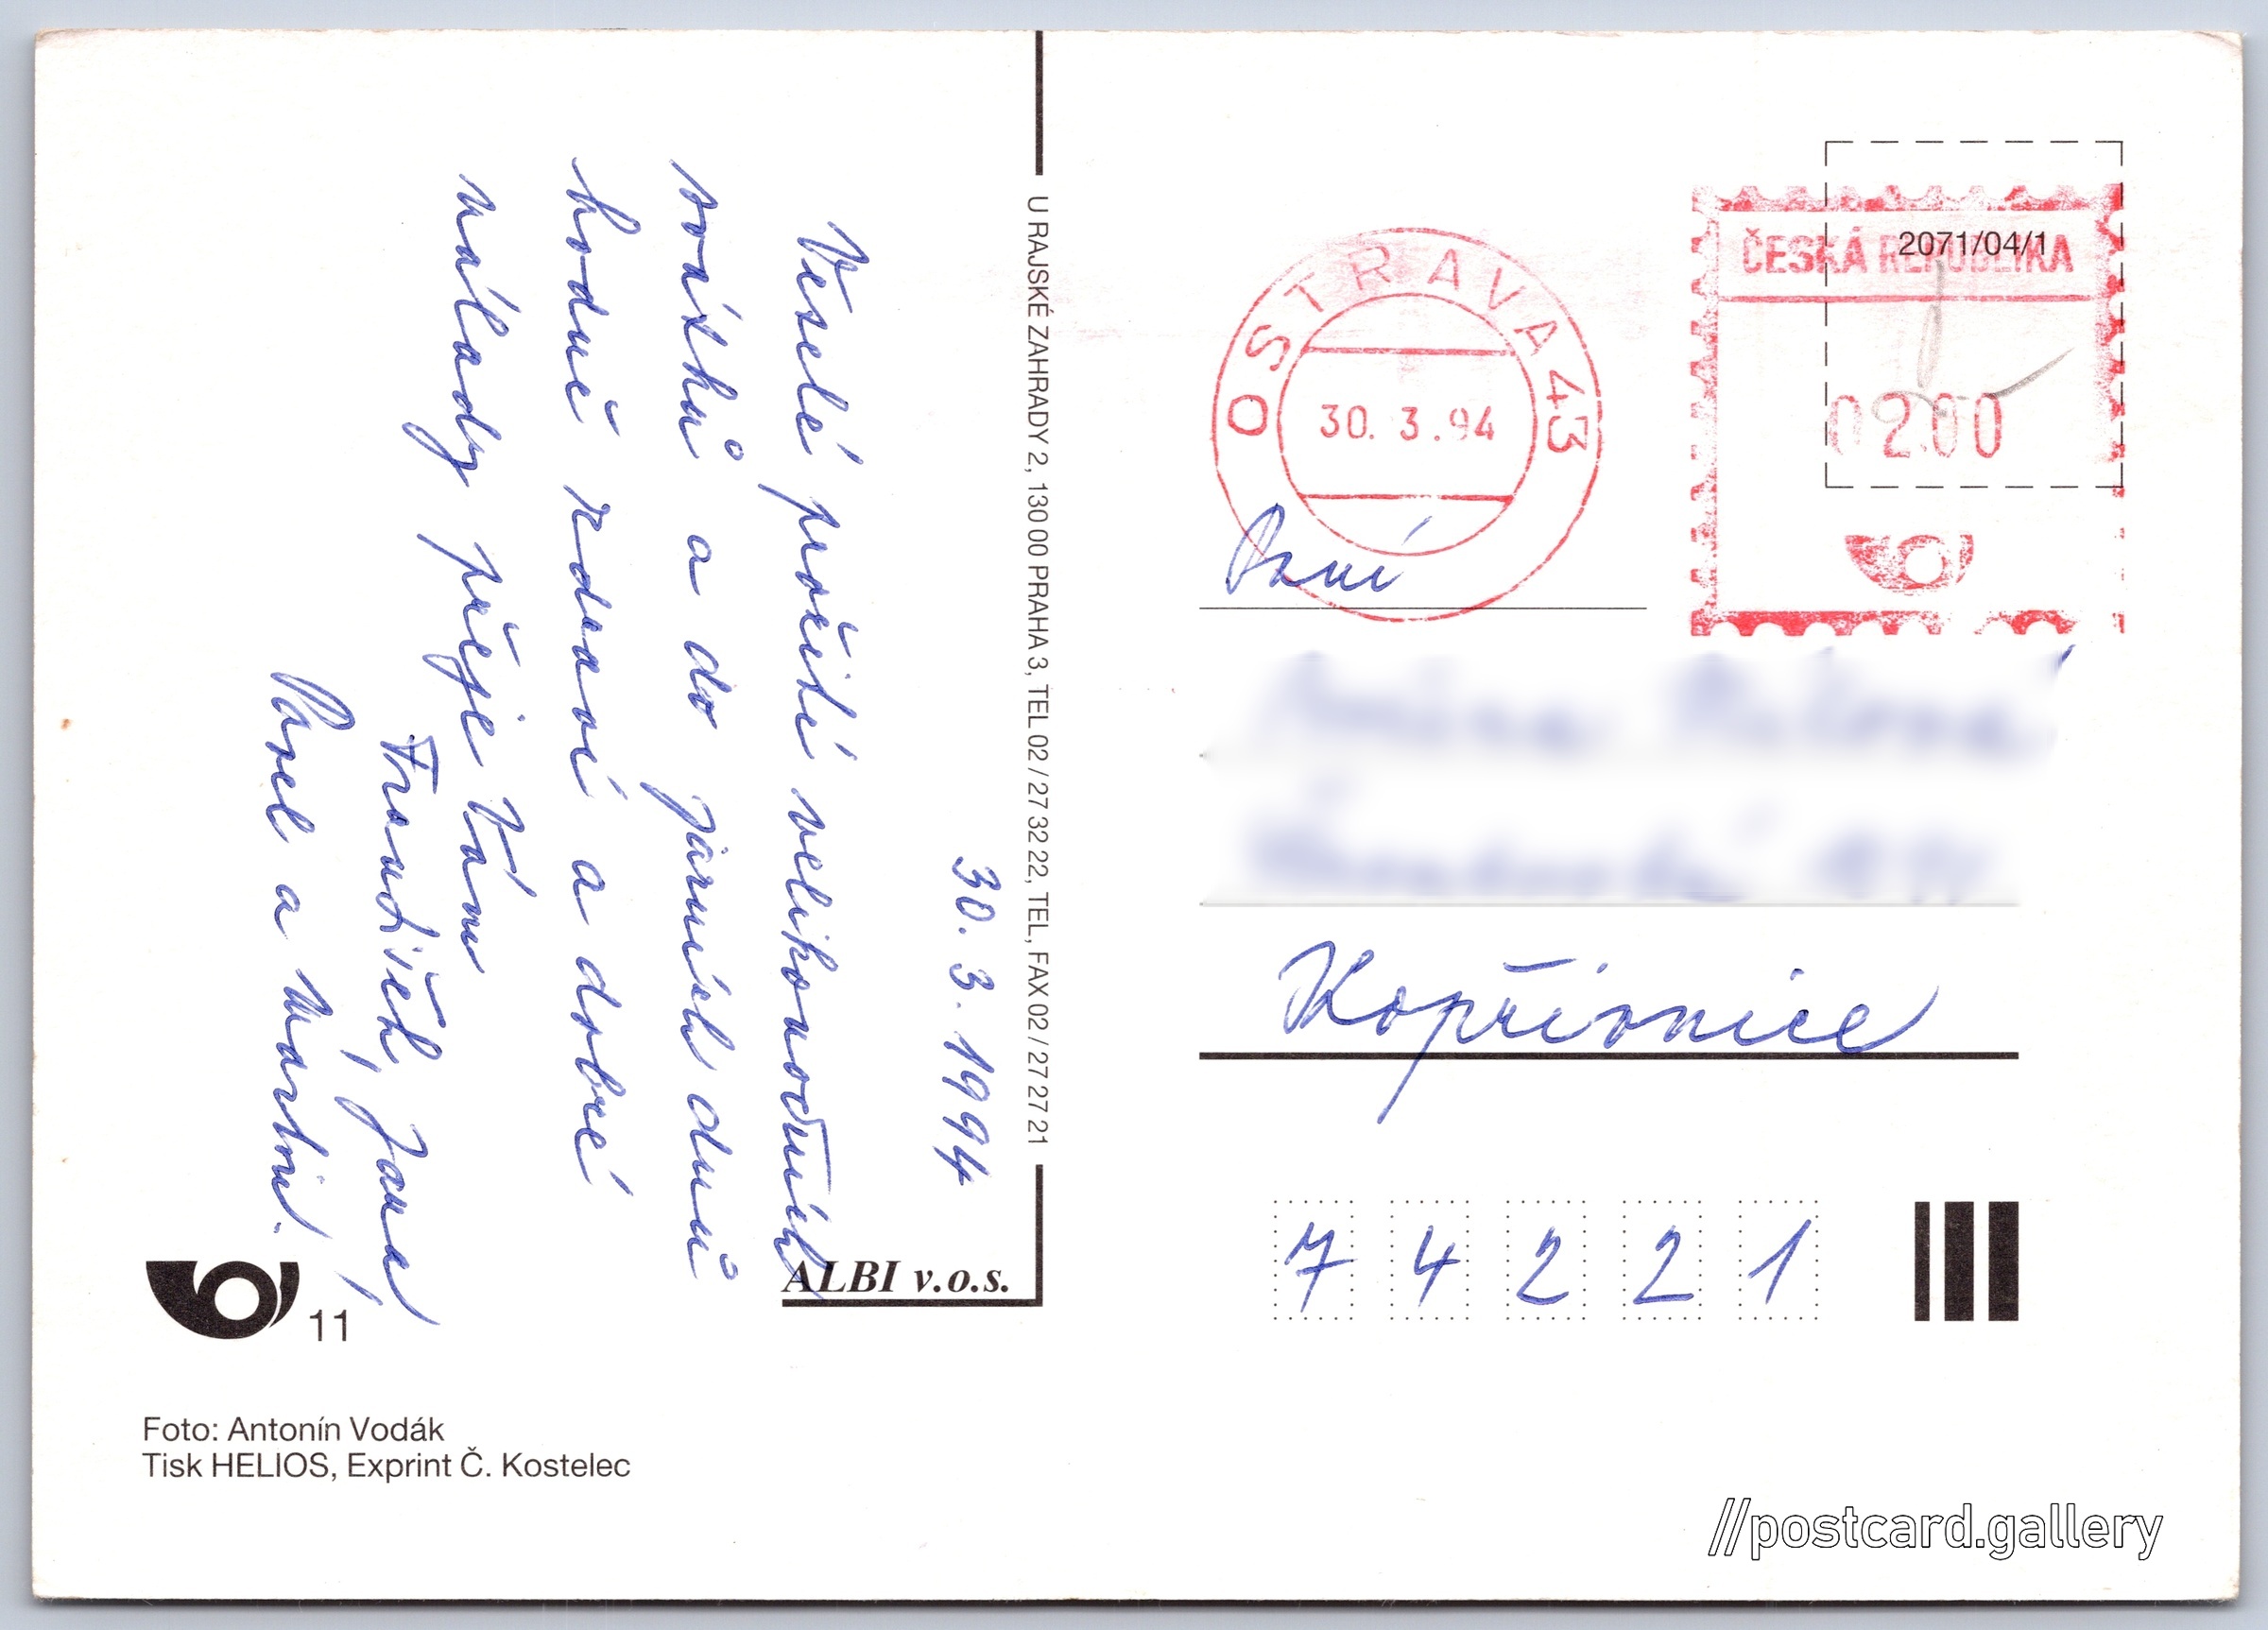 30. 3. 1994
Veselé prožití velikonočních
svátků a do jarních dnů
hodně zdraví a dobré
nálady přeje Vám
František, Jana,
Pavel a Martin.
U RAJSKÉ ZAHRADY 2, 130 00 PRAHA 3, TEL 02 / 27 32 22, TEL, FAX 02 / 27 27 21
ALBI v.o.s.
11
Foto: Antonín Vodák
Tisk HELIOS, Exprint Č. Kostelec
OSTRAVA 43
30. 3.94
ČESKÁ REPUBLIKA
2071/04/1
0200
Paní
Kopřivnice
74221
//postcard.gallery